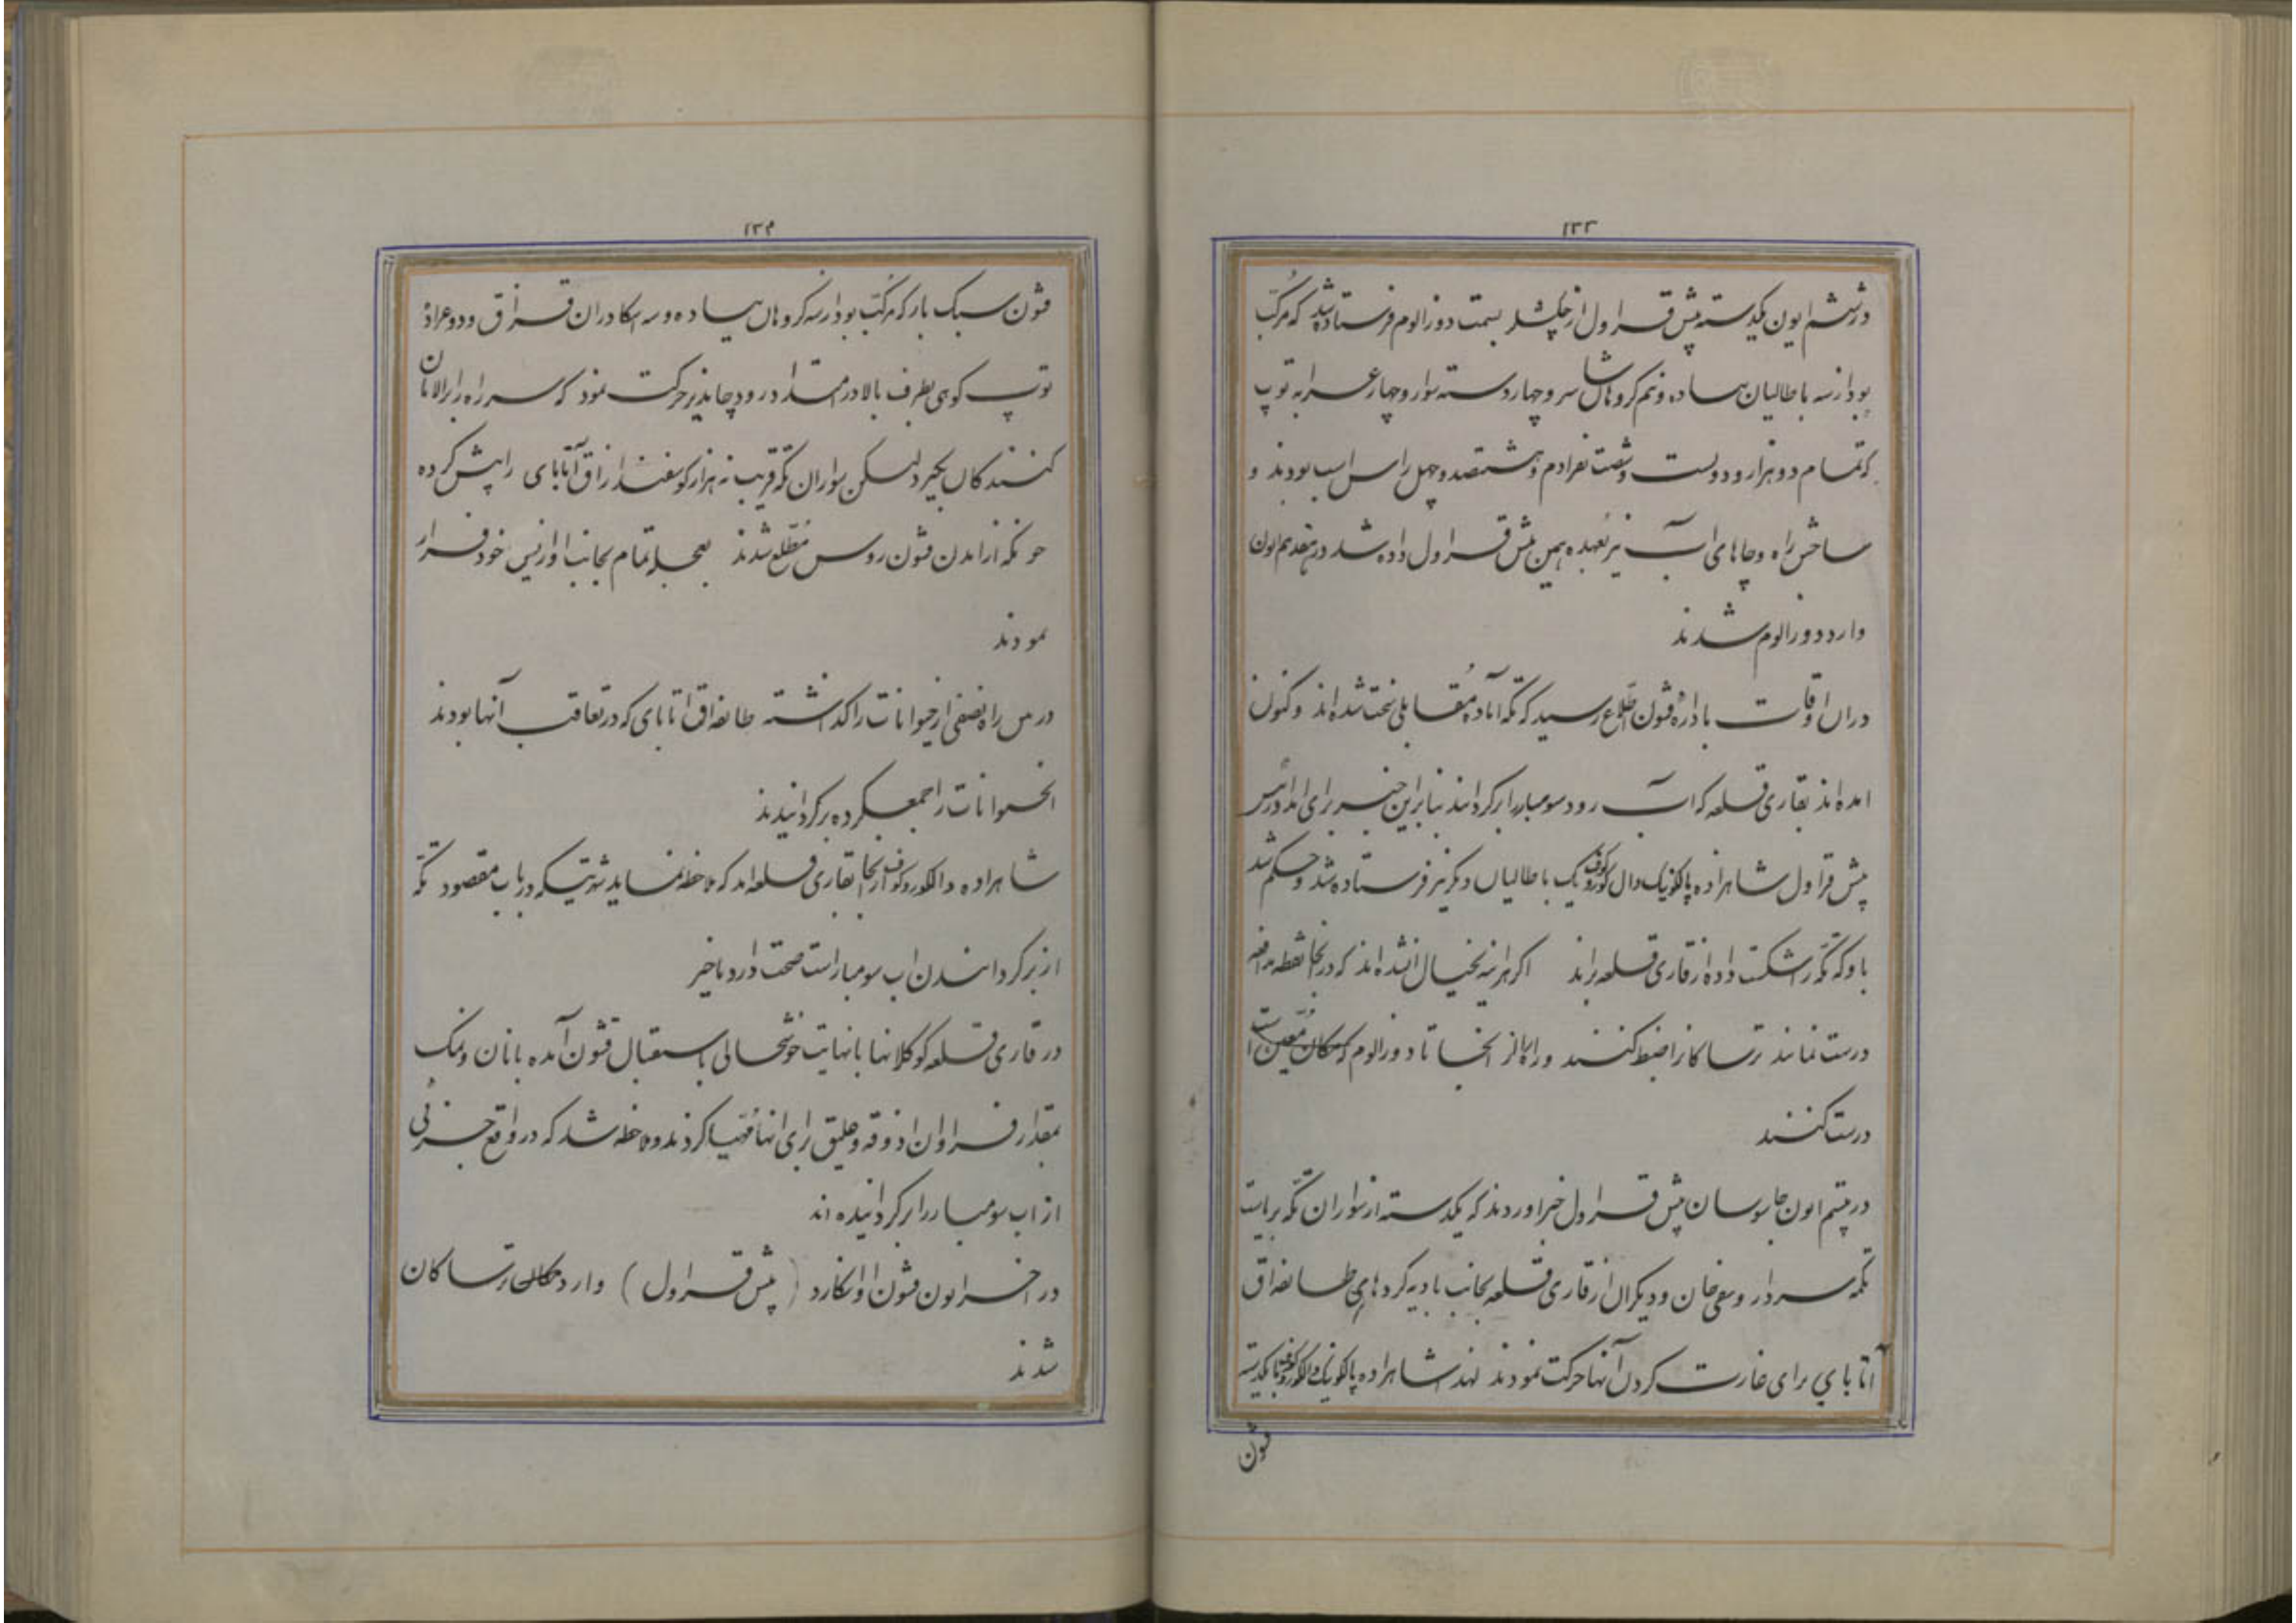 ۱۳۳
در ششم ایون یکدسته پیش قراول از چکشلر بسمت دوزالوم فرستاده شد که مرکب
بود از سه باطالیان پیاده و نیم کروهان ساپر و چهار دسته سوار و چهار عرابه توپ
که تمام دو هزار و دویست و شصت نفر ادم و هشتصد و چهل راس اسب بودند و
ساختن راه و چاهای آب نیز بعهده همین پیش قراول داده شد در هفدهم ایون
وارد دوزالوم شدند
در ان اوقات باداره قشون اطلاع رسید که تکه آماده مقابلی سخت شده اند و کنون
امده اند بقاری قلعه که آب رود سومبار را برکردانند بنابراین خبر برای امداد
پیش قراول شاهزاده پالکونیک دالکوروکوف یک باطالیان دیکر نیز فرستاده شد و حکم شد
باو که تکه را شکست داده از قاری قلعه براند اکر هر اینه بخیال افتاده اند که در انجا نقطه مدافعه
درست نمانند ترساکان را ضبط کنند و راه را از انجا تا دوزالوم که مکان معین است
درست کنند
در بیستم ایون جاسوسان پیش قراول خبر اوردند که یکدسته از سواران تکه بریاست
تکمه سردار و صفی خان و دیکران از قاری قلعه بجانب بادیه کردهای طایفه اق
آتابای برای غارت کردن آنها حرکت نمودند لهذا شاهزاده پالکونیک دالکوروکوف با یکدسته
قشون
۱۳۴
قشون سبک بار که مرکب بود از سه کروهان پیاده و سه اسکادران قزاق و دو عراده
توپ کوهی بطرف بالا در امتداد رود چاندیر حرکت نمود که سر راه را برالامان
کنندکان بکیرد لیکن سواران تکه قریب نه هزار کوسفند از اق آتابای را پیش کرده
چونکه از امدن قشون روس مطلع شدند بعجله تمام بجانب اواز پس خود فرار
نمودند
در بین راه نصفی از حیوانات را کذاشته طایفه اق اتابای که در تعاقب آنها بودند
انحیوانات را جمع کرده برکردانیدند
شاهزاده دالکوروکوف از انجا بقاری قلعه امد که ملاحظه نماید شهرتیکه در باب مقصود تکه
از برکردانیدن اب سومبار است صحت دارد یا خیر
در قاری قلعه کوکلانها با نهایت خوشحالی باستقبال قشون آمده با نان و نمک
بمقدار فراوان اذوقه و علیق برای انها مهیا کردند و ملاحظه شد که در واقع جزئی
از اب سومبار را برکردانیده اند
در اخر ایون قشون اوانکارد (پیش قراول) وارد مکان ترساکان
شدند